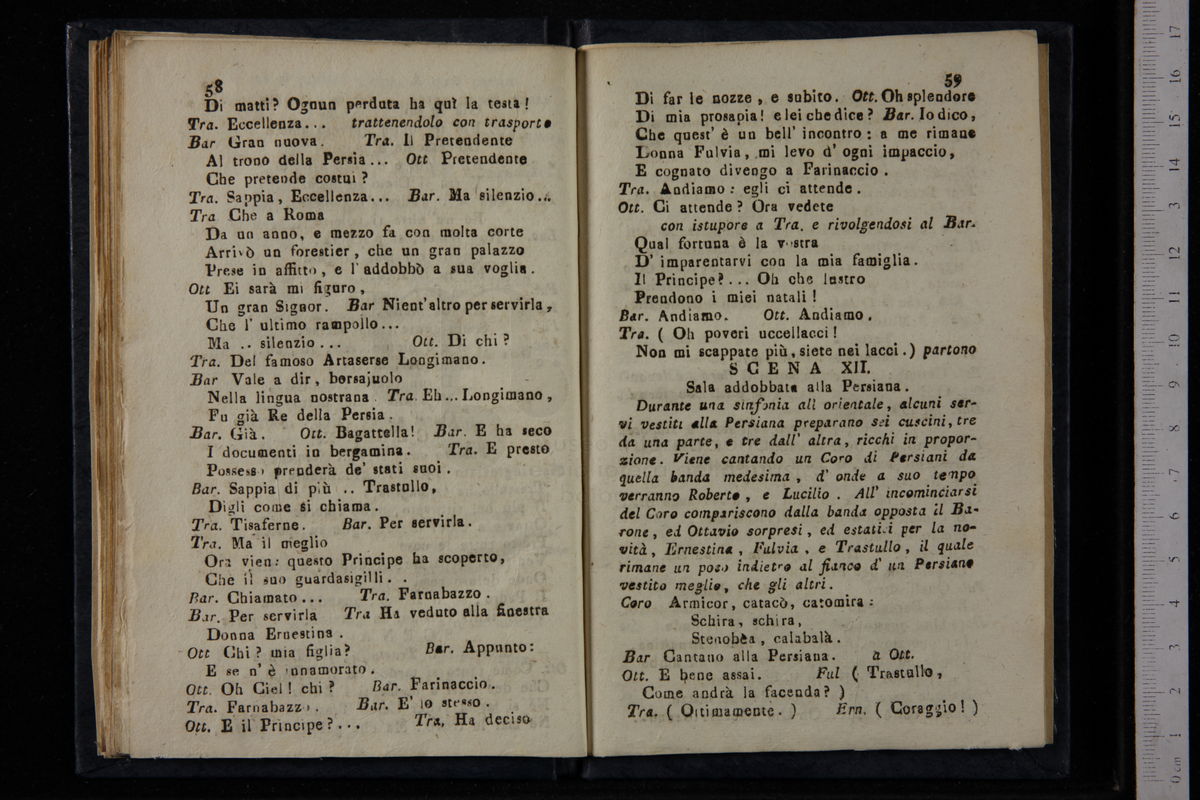 58
Di matti? Ognun perduta ha quì la testa!
Tra. Eccellenza... trattenendolo con trasporto
Bar Gran nuova. Tra. Il Pretendente
Al trono della Persia... Ott Pretendente
Che pretende costui?
Tra. Sappia, Eccellenza... Bar. Ma silenzio...
Tra Che a Roma
Da un anno, e mezzo fa con molta corte
Arrivò un forestier, che un gran palazzo
Prese in affitto, e l' addobbò a sua voglia.
Ott Ei sarà mi figuro,
Un gran Signor. Bar Nient' altro per servirla,
Che l' ultimo rampollo...
Ma .. silenzio... Ott. Di chi?
Tra. Del famoso Artaserse Longimano.
Bar Vale a dir, borsajuolo
Nella lingua nostrana. Tra Eh... Longimano,
Fu già Re della Persia.
Bar. Già. Ott. Bagattella! Bar. E ha seco
I documenti in bergamina. Tra. E presto
Possesso prenderà de' stati suoi.
Bar. Sappia di più .. Trastullo,
Digli come si chiama.
Tra. Tisaferne. Bar. Per servirla.
Tra. Ma il meglio
Ora vien: questo Principe ha scoperto,
Che il suo guardasigilli. .
Bar. Chiamato... Tra. Farnabazzo.
Bar. Per servirla Tra Ha veduto alla finestra
Donna Ernestina.
Ott Chi? mia figlia? Bar. Appunto:
E se n' è innamorato.
Ott. Oh Ciel! chi? Bar. Farinaccio.
Tra. Farnabazzo. Bar. E' lo stesso.
Ott. E il Principe?... Tra, Ha deciso
59
Di far le nozze, e subito. Ott. Oh splendore
Di mia prosapia! e lei che dice? Bar. Io dico,
Che quest' è un bell' incontro: a me rimane
Donna Fulvia, mi levo d' ogni impaccio,
E cognato divengo a Farinaccio.
Tra. Andiamo: egli ci attende.
Ott. Ci attende? Ora vedete
con istupore a Tra. e rivolgendosi al Bar.
Qual fortuna è la vostra
D' imparentarvi con la mia famiglia.
Il Principe?... Oh che lustro
Prendono i miei natali!
Bar. Andiamo. Ott. Andiamo.
Tra. ( Oh poveri uccellacci!
Non mi scappate più, siete nei lacci.) partono
SCENA XII.
Sala addobbata alla Persiana.
Durante una sinfonia all orientale, alcuni ser-
vi vestiti alla Persiana preparano sei cuscini, tre
da una parte, e tre dall' altra, ricchi in propor-
zione. Viene cantando un Coro di Persiani da
quella banda medesima, d' onde a suo tempo
verranno Roberto, e Lucilio. All' incominciarsi
del Coro compariscono dalla banda opposta il Ba-
rone, ed Ottavio sorpresi, ed estatici per la no-
vità, Ernestina, Fulvia, e Trastullo, il quale
rimane un poco indietro al fianco d' un Persiano
vestito meglio, che gli altri.
Coro Armicor, catacò, catomira:
Schira, schira,
Stenobèa, calabalà.
Bar Cantano alla Persiana. a Ott.
Ott. E bene assai. Ful ( Trastullo,
Come andrà la facenda? )
Tra. ( Ottimamente. ) Ern. ( Coraggio! )